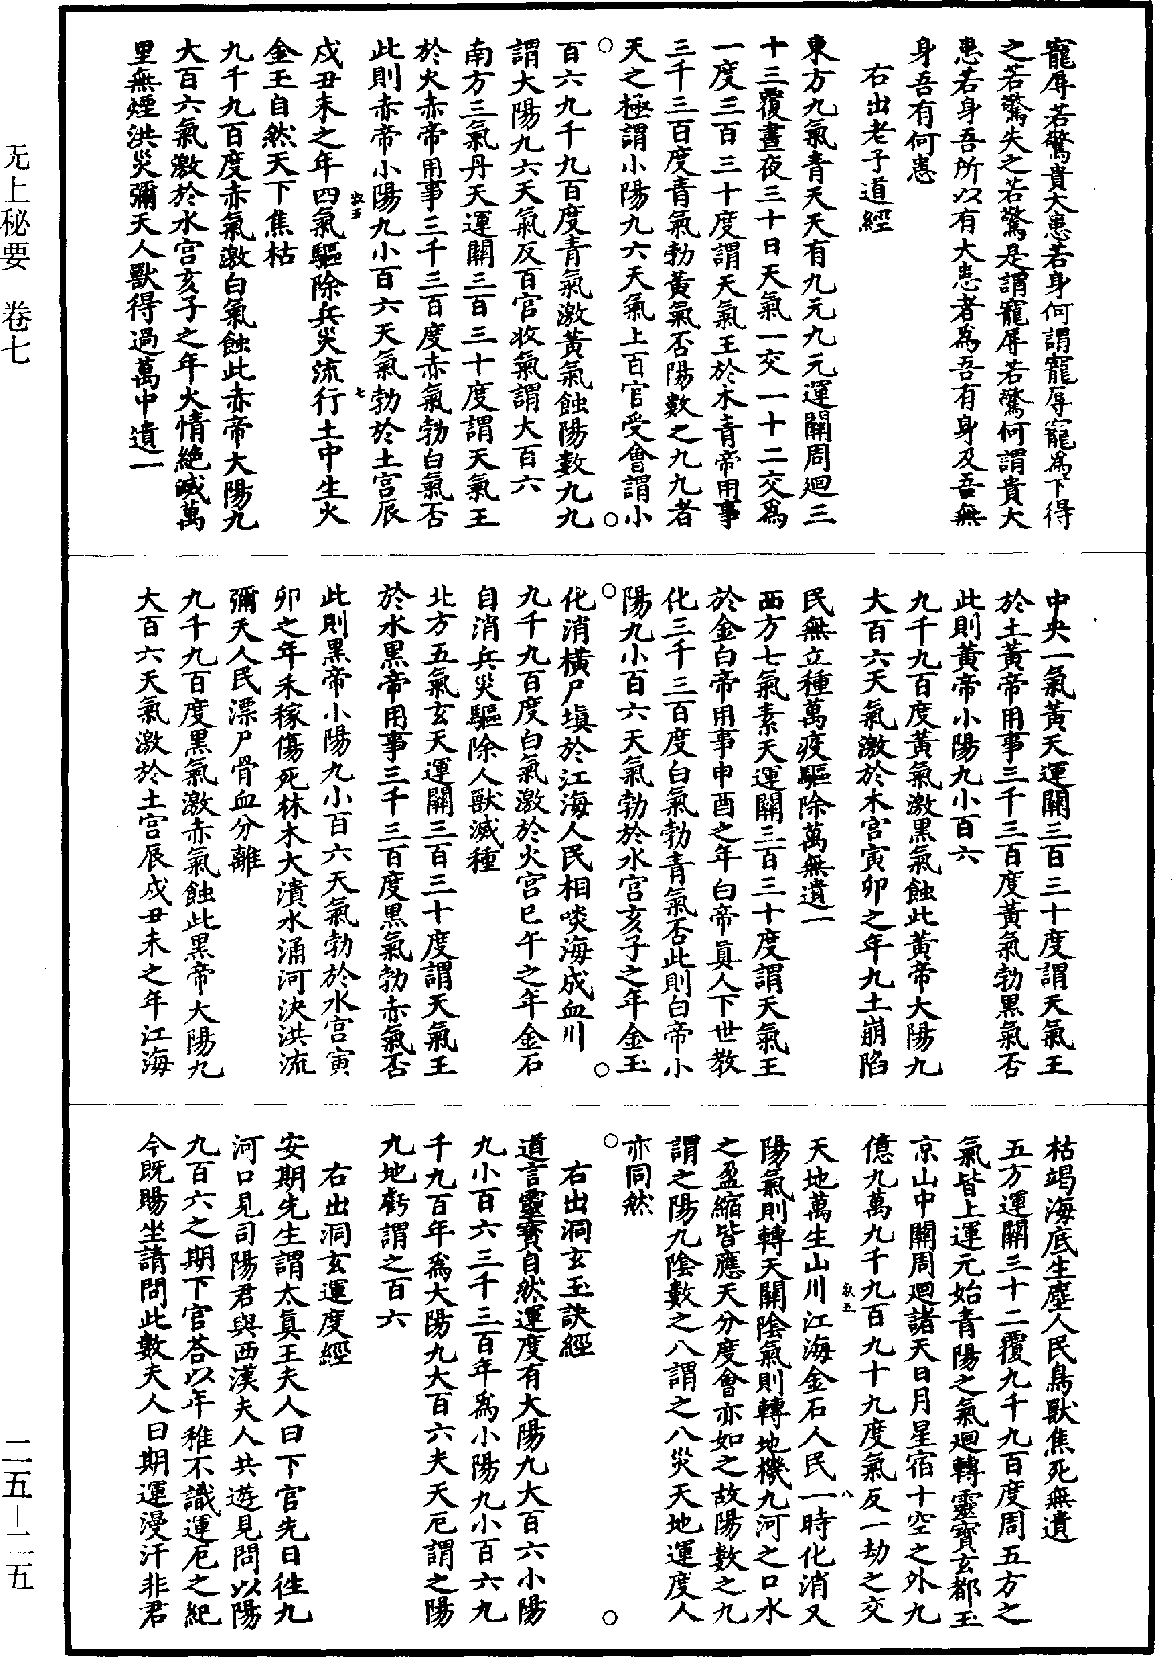 寵辱若驚貴大患若身何謂寵辱寵爲下得
之若驚失之若驚是謂寵辱若驚何謂貴大
患若身吾所以有大患者爲吾有身及吾無
身吾有何患
右出老子道經
東方九氣青天天有九元九元運關周迴三
十三覆晝夜三十日天氣一交一十二交爲
一度三百三十度謂天氣王於木青帝用事
三千三百度青氣勃黃氣否陽數之九九者
天之極謂小陽九六天氣上百官受會謂小
百六九千九百度青氣激黃氣蝕陽數九九
謂大陽九六天氣反百官收氣謂大百六
南方三氣丹天運關三百三十度謂天氣王
於火赤帝用事三千三百度赤氣勃白氣否
此則赤帝小陽九小百六天氣勃於土宮辰
戌丑未之年四氣驅除兵災流行土中生火
金玉自然天下焦枯
九千九百度赤氣激白氣蝕此赤帝大陽九
大百六氣激於水宮亥子之年火情絶滅萬
里無煙洪災彌天人獸得過萬中遺一
中央一氣黃天運關三百三十度謂天氣王
於土黃帝用事三千三百度黃氣勃黑氣否
此則黃帝小陽九小百六
九千九百度黃氣激黑氣蝕此黃帝大陽九
大百六天氣激於木宮寅卯之年九土崩陷
民無立種萬疫驅除萬無遺一
西方七氣素天運關三百三十度謂天氣王
於金白帝用事申酉之年白帝眞人下世教
化三千三百度白氣勃青氣否此則白帝小
陽九小百六天氣勃於水宮亥子之年金玉
化消橫尸塡於江海人民相啖海成血川
九千九百度白氣激於火宮巳午之年金石
自消兵災驅除人獸滅種
北方五氣玄天運關三百三十度謂天氣王
於水黑帝用事三千三百度黑氣勃赤氣否
此則黑帝小陽九小百六天氣勃於水宮寅
卯之年禾稼傷死林木大潰水涌河決洪流
彌天人民漂尸骨血分離
九千九百度黑氣激赤氣蝕此黑帝大陽九
大百六天氣激於土宮辰戌丑未之年江海
枯竭海底生塵人民鳥獸焦死無遺
五方運關三十二覆九千九百度周五方之
氣皆上運元始青陽之氣迴轉靈寶玄都玉
京山中關周迴諸天日月星宿十空之外九
億九萬九千九百九十九度氣反一劫之交
天地萬生山川江海金石人民一時化消又
陽氣則轉天關陰氣則轉地機九河之口水
之盈縮皆應天分度會亦如之故陽數之九
謂之陽九陰數之八謂之八災天地運度人
亦同然
右出洞玄玉訣經
道言靈寶自然運度有大陽九大百六小陽
九小百六三千三百年爲小陽九小百六九
千九百年爲大陽九大百六夫天厄謂之陽
九地虧謂之百六
右出洞玄運度經
安期先生謂太眞王夫人曰下官先日往九
河口見司陽君與西漢夫人共遊見問以陽
九百六之期下官荅以年稚不識運厄之紀
今既賜坐請問此數夫人曰期運漫汗非君
无上秘要 卷七
二五－二五